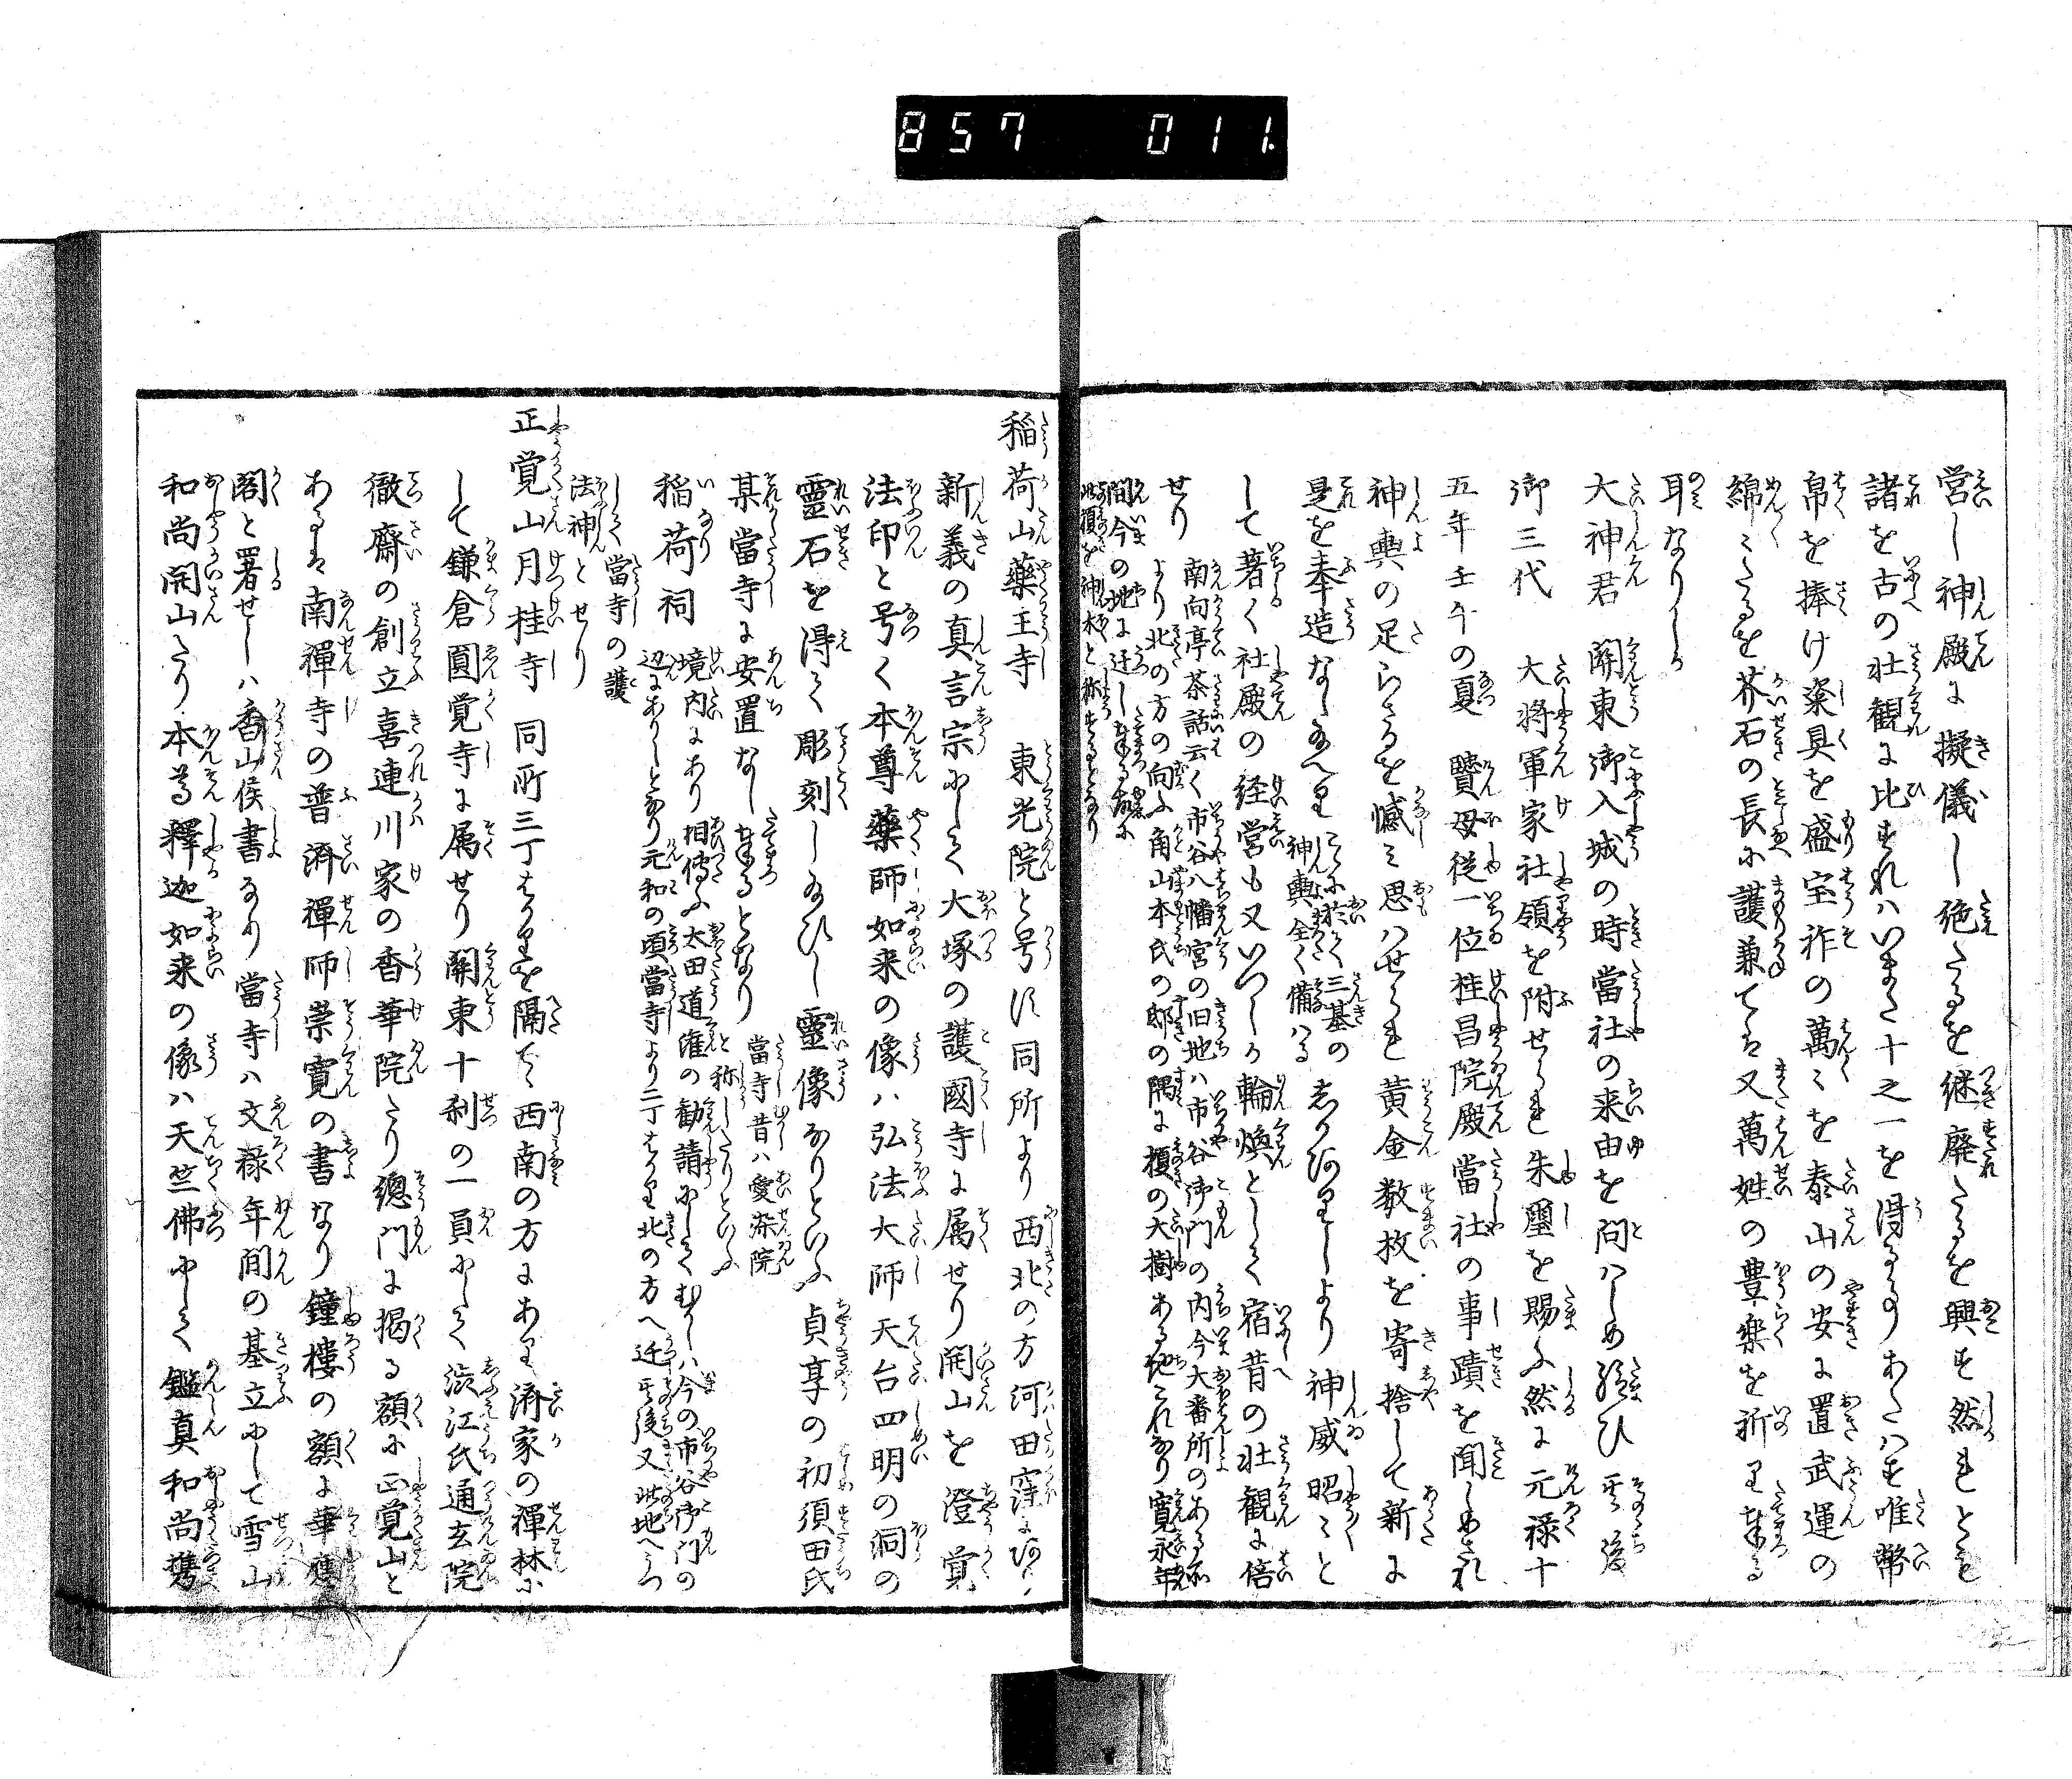 857 011.
営し神殿に擬儀し絶たるを継廃たるを興す然れとも
諸を古の壮観に比すれハいまた十之一を得るのあたハす唯幣
帛を捧け粢具を盛宝祚の萬々を泰山の安に置武運の
綿々たるを芥石の長に護兼てハ又萬姓の豊楽を祈り奉る
耳なりしか
大神君 関東御入城の時當社の来由を問ハしめ給ひ其後
御三代 大将軍家社領を附せられ朱璽を賜ふ然に元禄十
五年壬午の夏 賢母従一位桂昌院殿當社の事蹟を聞しめされ
神輿の足らさるを憾ミ思ハせられ黄金数枚を寄捨して新に
是を奉造なし給へり こゝに於て三基の
神輿全く備ハる しかありしより神威昭々と
して著く社殿の経営も又いつしか輪煥として宿昔の壮観に倍
せり 南向亭茶話云く市谷八幡宮の旧地ハ市谷御門の内今大番所のある所
より北の方の向ふ角山本氏の邸の隅に榎の大樹ある地これなり寛永年
間今の地に迁し奉る故に
此榎を神木と称するとなり
稲荷山藥王寺 東光院と号す同所より西北の方河田窪にあり
新義の真言宗にして大塚の護國寺に属せり開山を澄覚
法印と号く本尊藥師如来の像ハ弘法大師天台四明の洞の
靈石を得て彫刻し給ひし靈像なりといふ貞享の初須田氏
某當寺に安置なし奉るとなり 當寺昔ハ愛染院
と称したりといふ
稲荷祠 境内にあり相傳ふ太田道灌の勧請にしてむかしハ今の市谷御門の
辺にありしとなり元和の頃當寺より二丁はかり北の方へ迁其後又此地へうつ
して當寺の護
法神とせり
正覚山月桂寺 同所三丁はかりを隔たゝ西南の方にあり済家の禅林に
して鎌倉圓覚寺に属せり関東十刹の一員にして渋江氏通玄院
徹齋の創立喜連川家の香華院たり總門に掲る額に正覚山と
あるは南禅寺の普済禅師崇寛の書なり鐘樓の額に華鷹
閣と署せしハ香山侯書なり當寺ハ文禄年間の基立にして雪山
和尚開山たり本尊釋迦如来の像ハ天竺佛にして鑑真和尚携